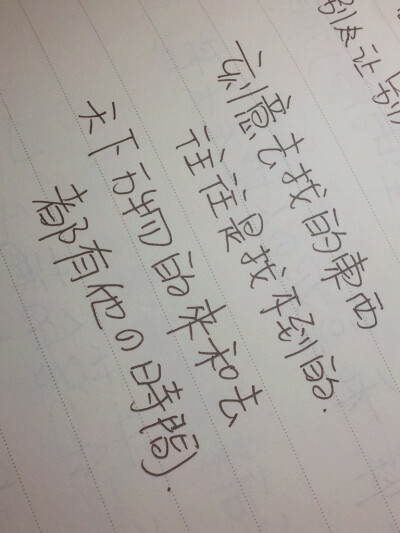 别人让别
刻意去找的東西
往往是找不到的.
天下万物的来和去
都有他の時間.